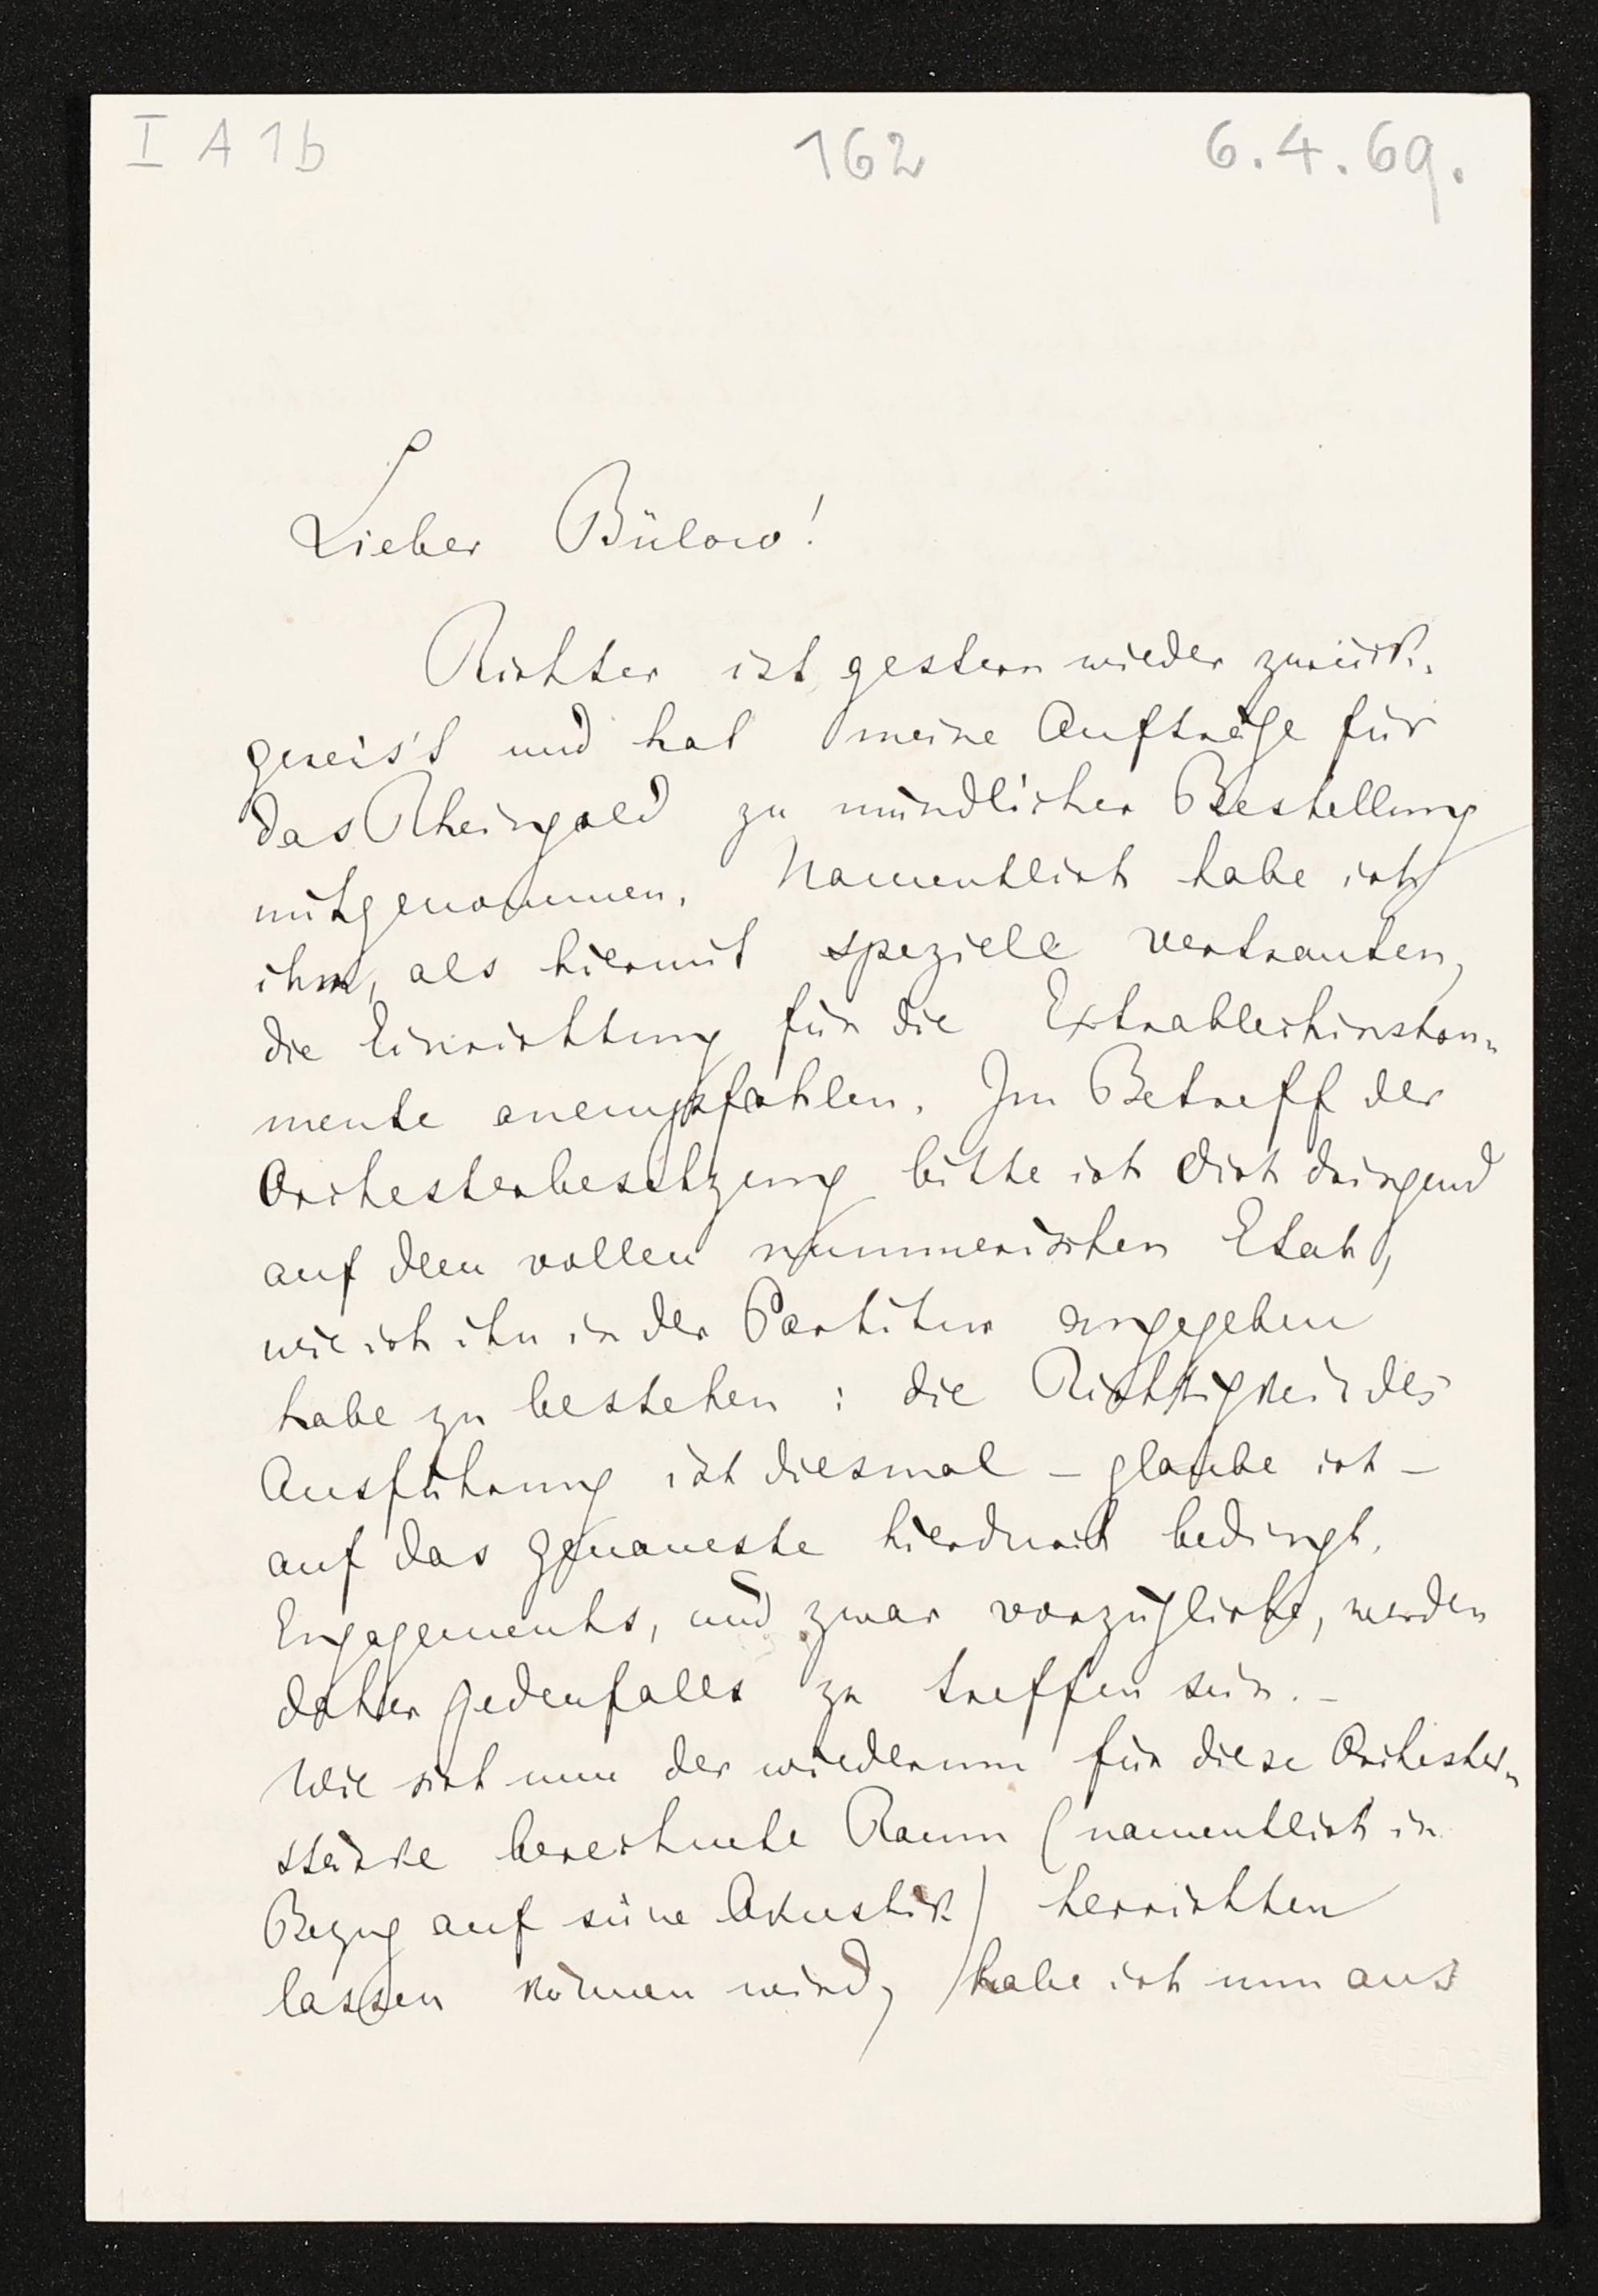 I A 1b 162 6.4.69.
Lieber Bülow!
Richter ist gestern wieder zurück-
gereis't und hat meine Aufträge für
das Rheingold zu mündlicher Bestellung
mitgenommen. Namentlich habe ich
ihm, als hiermit speziell vertrauten,
die Einrichtung für die Extrablechinstru-
mente anempfohlen. Im Betreff der
Orchesterbesetzung bitte ich Dich dringend
auf dem vollen nummerischen Etat,
wie ich ihn in der Partitur angegeben
habe zu bestehen: die Richtigkeit der
Ausführung ist diesmal – glaube ich –
auf das genaueste hierdurch bedingt.
Engagements, und zwar vorzügliche, werden
daher jedenfalls zu treffen sein. –
Wie sich nun der wiederum für diese Orchester-
stärke berechnete Raum (namentlich in
Bezug auf seine Akustik) herrichten
lassen können wird, habe ich nun aus